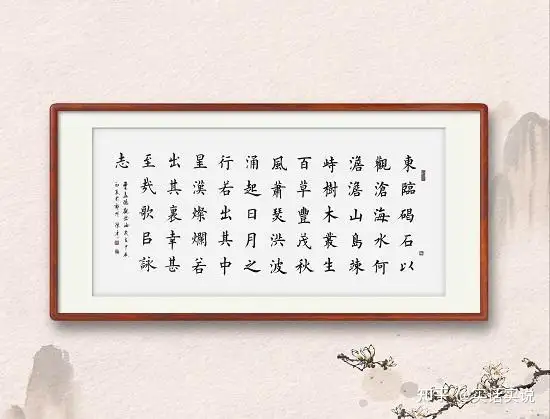 東臨碣石以
觀滄海水何
澹澹山島竦
峙樹木叢生
百草豐茂秋
風蕭瑟洪波
涌起日月之
行若出其中
星漢燦爛若
出其裏幸甚
至哉歌以詠
志
知乎 @实话实说